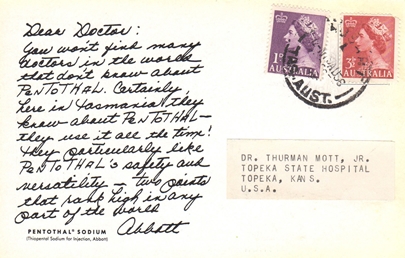 Dear Doctor:
You won't find many
doctors in the world
that don't know about
PENTOTHAL. Certainly,
here in Tasmania they
know about PENTOTHAL—
they use it all the time!
They particularly like
PENTOTHAL'S safety and
versatility — two points
that rank high in any
part of the world
Abbott
PENTOTHAL® SODIUM
(Thiopental Sodium for Injection, Abbott)
AUSTRALIA
AUSTRALIA
TAS. AUST.
DR. THURMAN MOTT, JR.
TOPEKA STATE HOSPITAL
TOPEKA, KANS.
U.S.A.